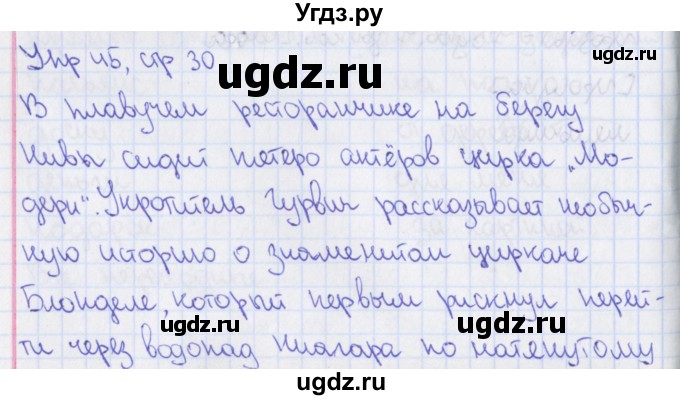 Угдз.ру
Упр 45, стр 30
ugdz.ru
В плавучем ресторанчике на берегу
Невы сидит пятеро актёров цирка „Мо-
ugdz.ru ugdz.ru
дерн". Укротитель Гурвич рассказывает необыч-
ную историю о знаменитом циркаче
Блонделе, который первым рискнул перей-
ugdz.ru ugdz.ru
ти через водопад Ниагара по натянутому
ugdz.ru